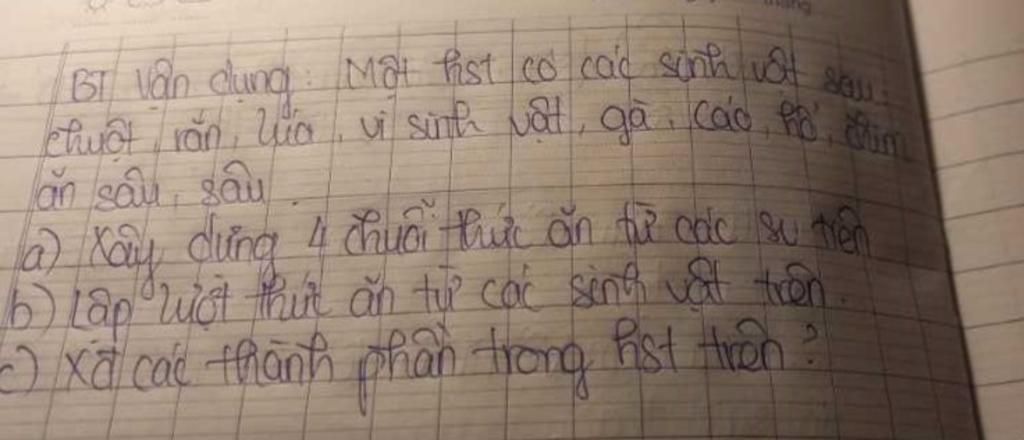 BT vận dụng: Một hst có các sinh vật sau:
chuột, rắn, lúa, vi sinh vật, gà, cáo, hổ, chim
ăn sâu, sâu.
a) Xây dựng 4 chuỗi thức ăn từ các sv trên
b) Lập lưới thức ăn từ các sinh vật trên.
c) Xđ các thành phần trong hst trên?